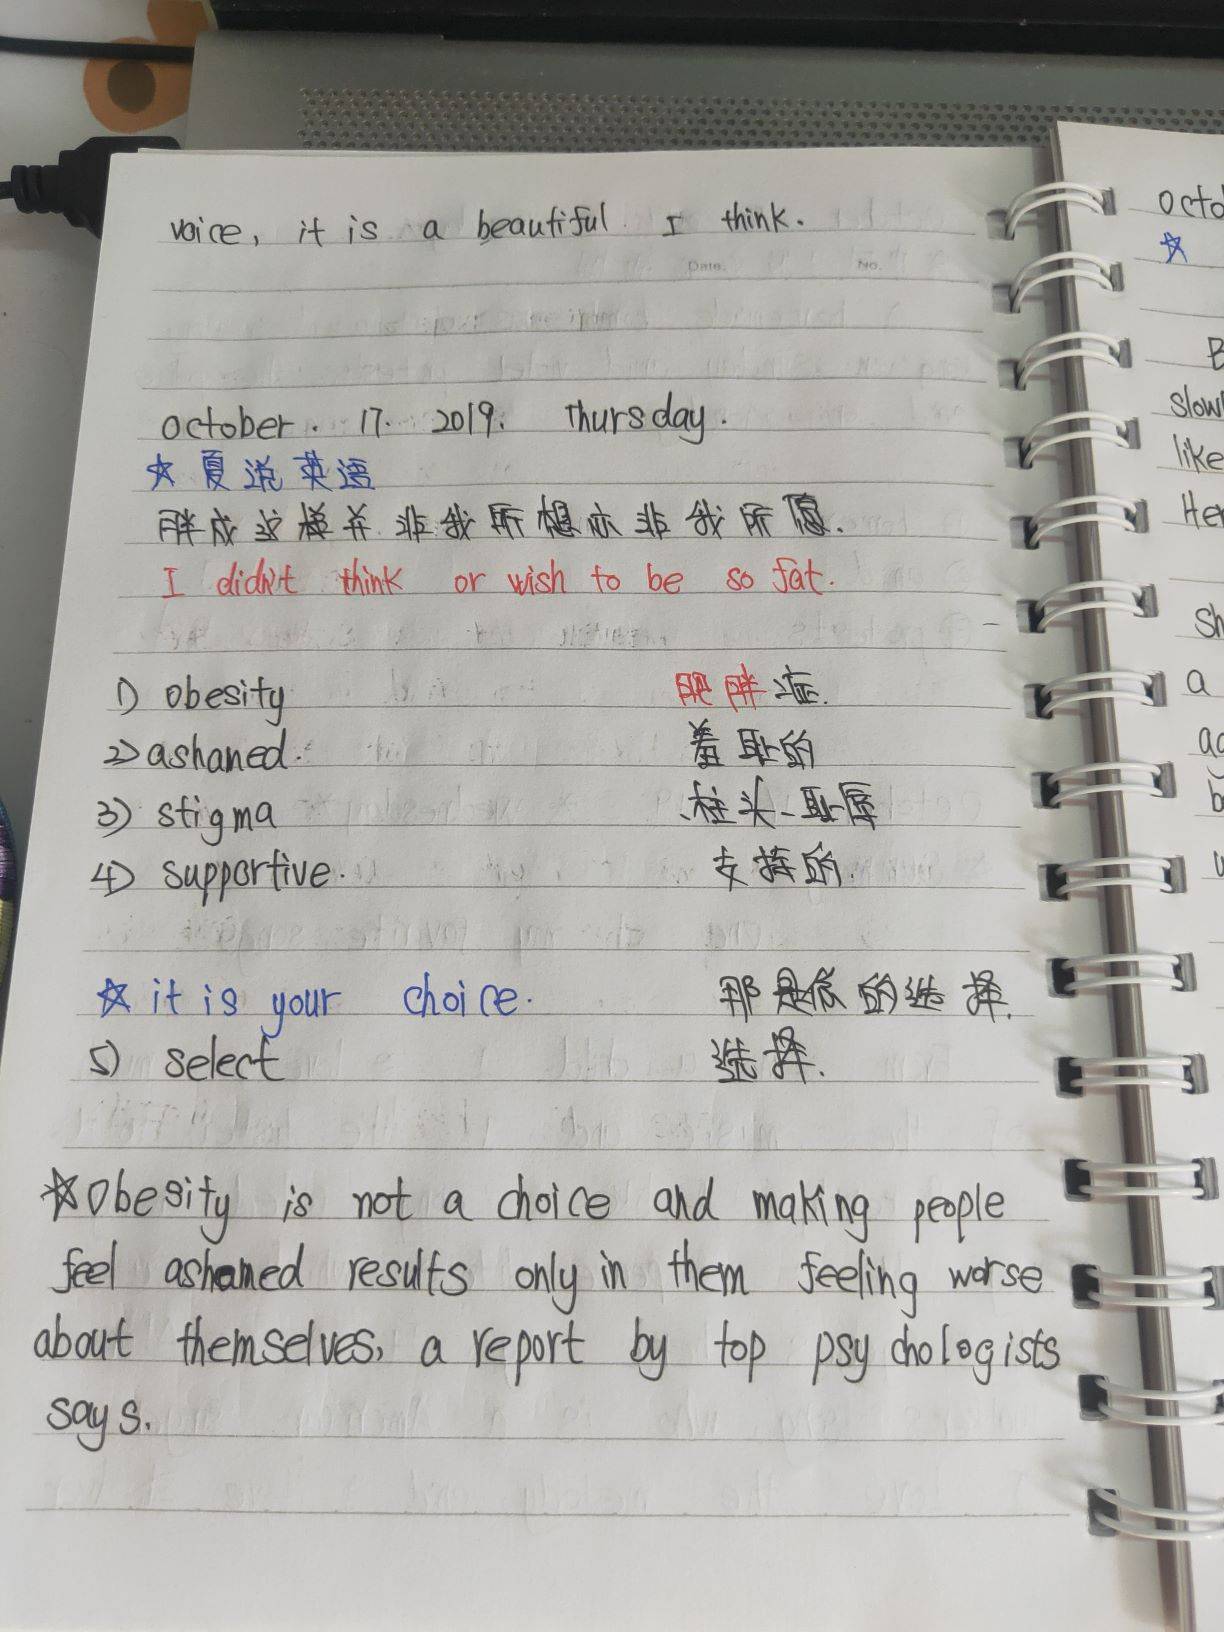 voice, it is a beautiful I think.
Date. No.
october. 17. 2019. Thursday.
☆ 夏说英语
胖成这样并非我所想亦非我所愿.
I didn't think or wish to be so fat.
1) obesity 肥胖症.
2) ashaned. 羞耻的
3) stigma 柱头、耻辱
4) supportive. 支持的.
☆ it is your choice. 那是你的选择.
5) select 选择.
☆ obesity is not a choice and making people
feel ashamed results only in them feeling worse
about themselves, a report by top psychologists
says.
octo
☆
B
slowl
like
Her
sh
a